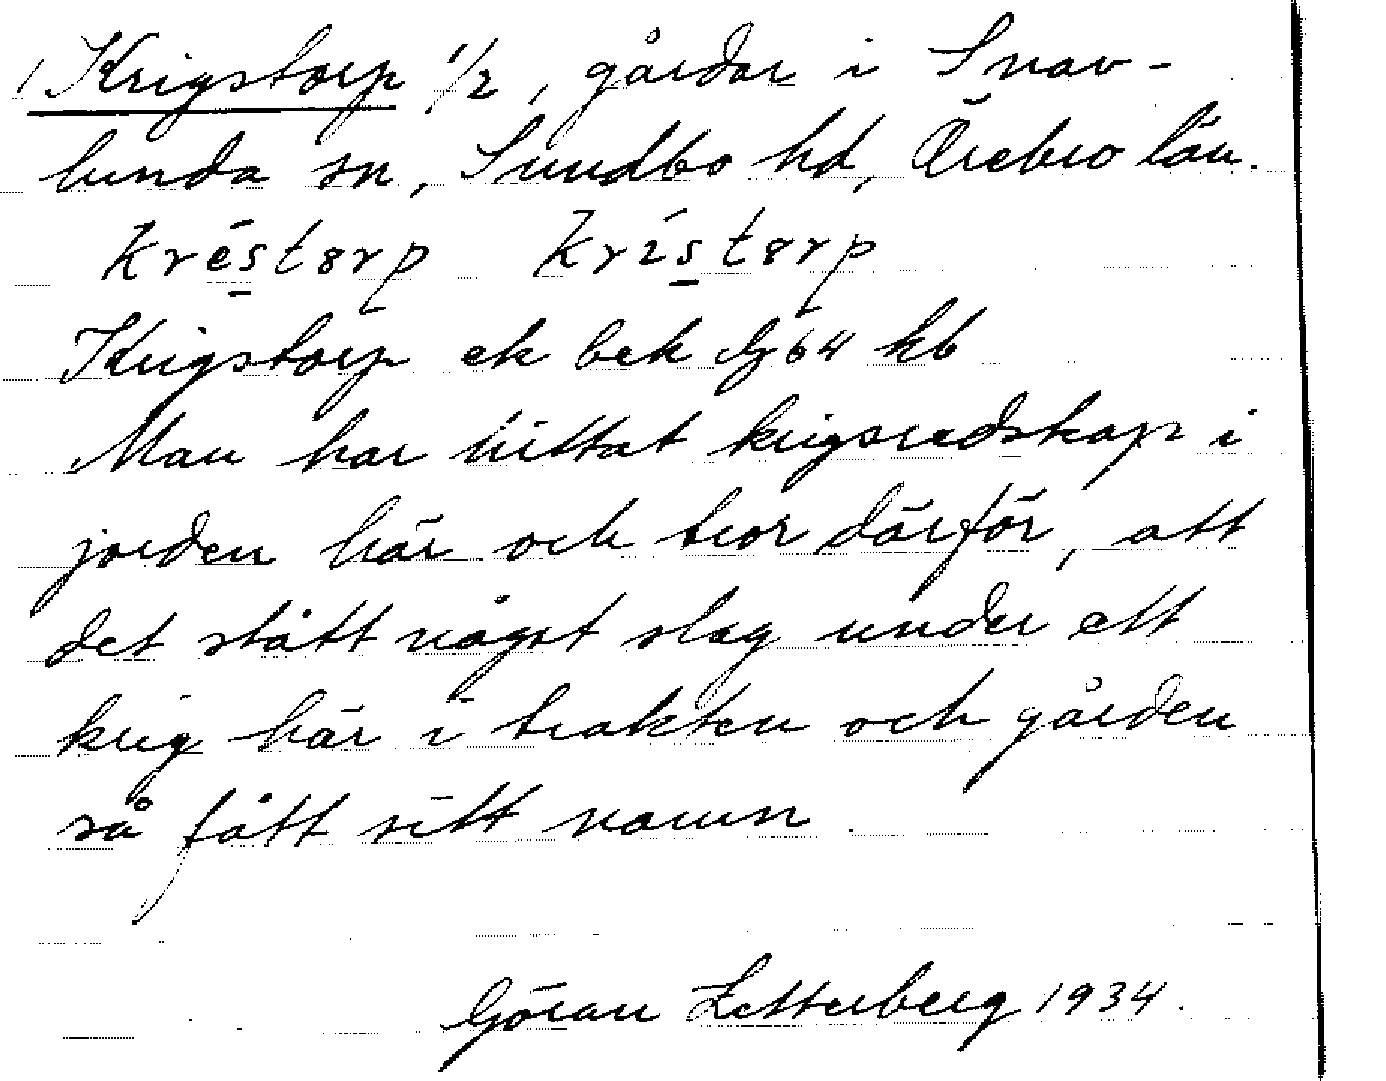 Krigstorp 1/2, gårdar i Snav-
lunda sn, Sundbo hd, Örebro län.
Kréstørp Krístørp
Krigstorp ek bek Gj 64 kb
Man har hittat krigsredskap i
jorden här och tror därför, att
det stått något slag under ett
krig här i trakten och gården
så fått sitt namn.
Göran Zetterberg 1934.